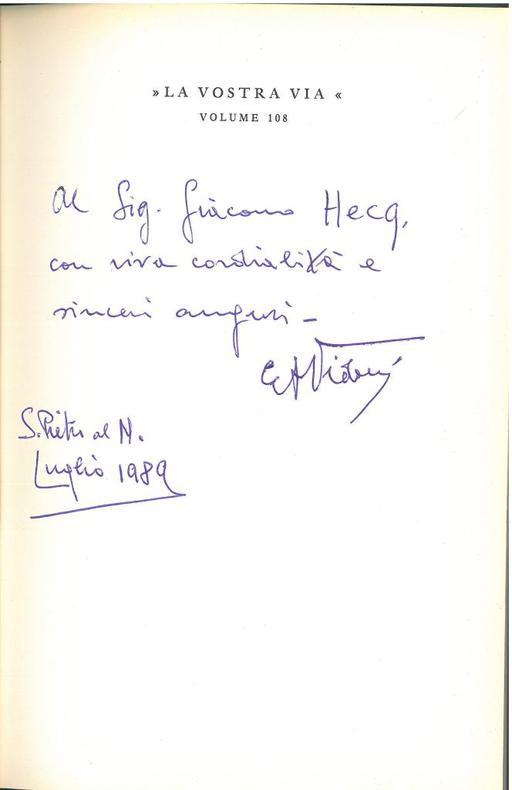 »LA VOSTRA VIA «
VOLUME 108
Al Sig. Giacomo Hecq,
con viva cordialità e
sinceri auguri –
S. Pietro al N.
Luglio 1989